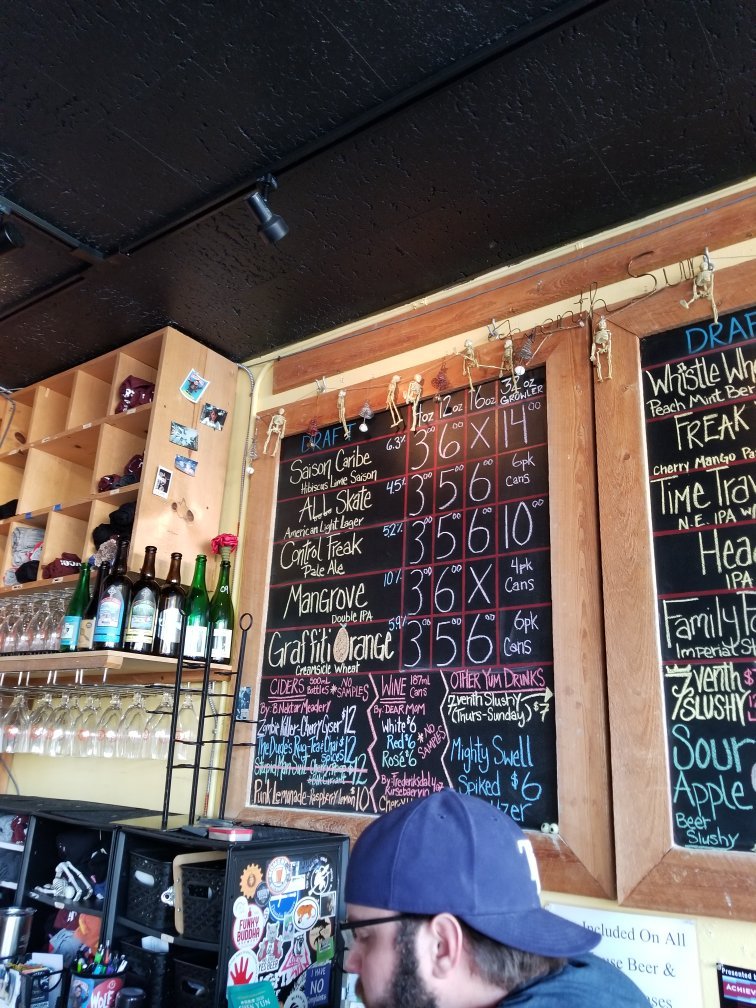 DRAFT
7oz 12oz 16oz 32oz GROWLER
Saison Caribe 6.3% 3⁰⁰ 6⁰⁰ X 14⁰⁰
Hibiscus Lime Saison
ALL Skate 4.5% 3⁰⁰ 5⁰⁰ 6⁰⁰ 6pk Cans
American Light Lager
Control Freak 5.2% 3⁰⁰ 5⁰⁰ 6⁰⁰ 10⁰⁰
Pale Ale
Mangrove 10% 3⁰⁰ 6⁰⁰ X 4pk Cans
Double IPA
Graffiti Orange 5.9% 3⁰⁰ 5⁰⁰ 6⁰⁰ 6pk Cans
Creamsicle Wheat
CIDERS 500mL Bottles *NO SAMPLES
By: B. Nektar Meadery
Zombie Killer-Cherry Cyser $12
The Dude's Rug-Tea & Chai Spices $12
Punk Lemonade-Raspberry Lemon $10
WINE 187mL Cans
By: DEAR MOM
White $6
Red $6
Rosé $6
*NO SAMPLES
By: Frederiksdal
OTHER YUM DRINKS
7venth Slushy
(Thurs-Sunday) $7
Mighty Swell
Spiked $6
DRAF
Whistle Wh
Peach Mint Be
FREAK
Cherry Mango Pa
Time Trav
N.E. IPA w/
Hea
IPA
Family
Imperial St
7venth $
SLUSHY
Sour
Apple
Beer
Slushy
FUNKY BUDDHA
I HAVE NO
Included On All
use Beer &
Presented
ACHIEV